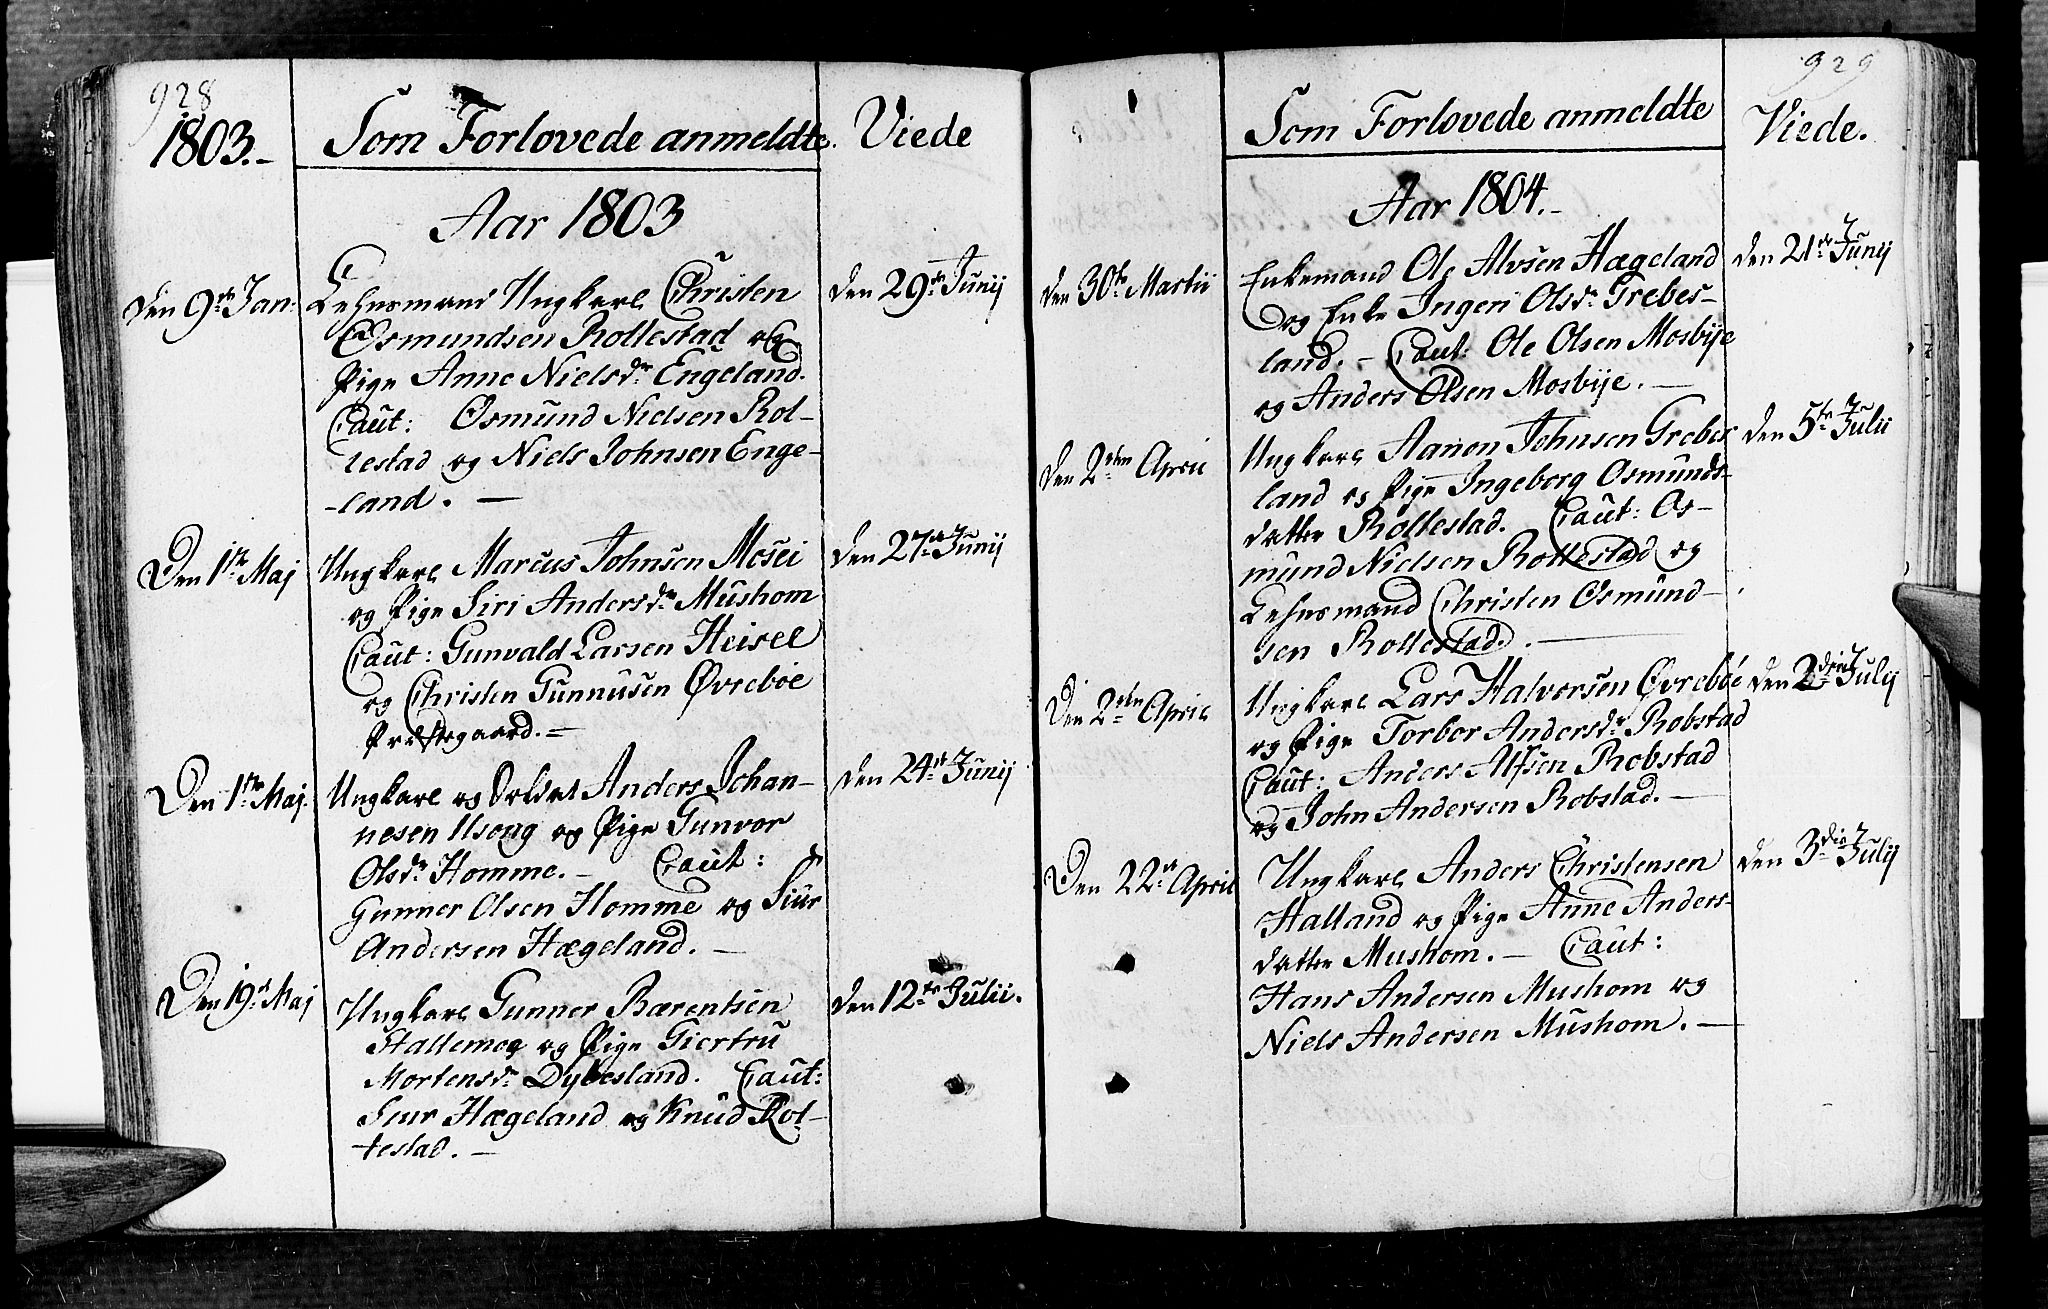 928
1803.-
Som Forlovede anmeldte.
Viede
Aar 1803
Den 9de Jan:
Lehnsmand Ungkarl Christen
Osmundsen Rollestad og
Pige Anne Nielsdr Engeland.
Caut: Osmund Nielsen Rol-
lestad og Niels Johnsen Enge-
-land. -
den 29de Junij
Den 1te Maj
Ungkarl Marcus Johnsen Mosei
og Pige Siri Andersdr Mushom
Caut: Gunvald Larsen Heisel
og Christen Gunnusen Øvrebøe
Præstegaard. =
den 27de Junij
Den 1te Maj.
Ungkarl og Soldat Anders Johan-
nesen Usong og Pige Gunvor
Olsdr Homme. - Caut:
Gunner Olsen Homme og Siur
Andersen Hægeland. -
den 24de Junij
Den 19de Maj
Ungkarl Gunner Bærentsen
Stallemog og Pige Giertru
Mortensdr Dybesland. Caut:
Siur Hægeland og Knud Rol-
lestad. -
den 12te Julii.
929
Som Forlovede anmeldte
Viede.
Aar 1804.-
den 30te Martii
Enkemand Ole Alvsen Hægeland
og Enke Ingeri Olsdr Grebes-
land. - Caut: Ole Olsen Mosbye
og Anders Olsen Mosbije. -
den 21de Junij
den 2den April
Ungkarl Aanon Johnsen Grebes
land og Pige Ingeborg Osmunds-
datter Rollestad. Caut: Os-
mund Nielsen Rollestad og
Lehnsmand Christen Osmund-
sen Rollestad. -
den 5te Julii
Den 2den April
Ungkarl Lars Halvorsen Øvrebøe
og Pige Torbor Andersdr Robstad
Caut: Anders Alfsen Robstad
og John Andersen Robstad. -
den 2den Julij
Den 22de April
Ungkarl Anders Christensen
Halland og Pige Anne Anders-
datter Mushom. - Caut:
Hans Andersen Mushom og
Niels Andersen Mushom. -
den 3die Julij